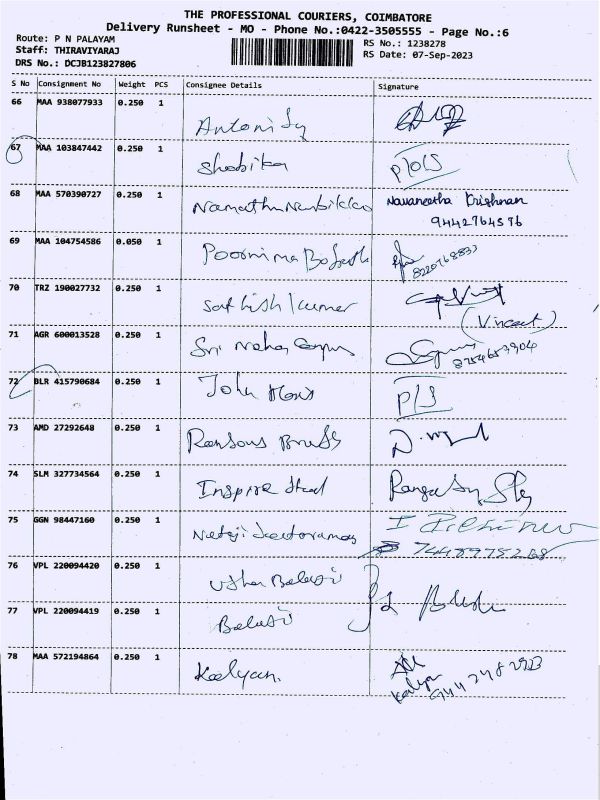 THE PROFESSIONAL COURIERS, COIMBATORE
Delivery Runsheet - MO - Phone No.:0422-3505555 - Page No.:6
Route: P N PALAYAM RS No.: 1238278
Staff: THIRAVIYARAJ RS Date: 07-Sep-2023
DRS No.: DCJB123827806
S No Consignment No Weight PCS Consignee Details Signature
66 MAA 938077933 0.250 1
67 MAA 103847442 0.250 1 Shobika
68 MAA 570390727 0.250 1 Navaneetha Krishnan
9442764576
69 MAA 104754586 0.050 1 Poornima
70 TRZ 190027732 0.250 1 Sathish kumar
(Vincent)
71 AGR 600013528 0.250 1 Sri Maha
72 BLR 415790684 0.250 1 John
73 AMD 27292648 0.250 1
74 SLM 327734564 0.250 1 Inspire Steel
75 GGN 98447160 0.250 1 Netaji
76 VPL 220094420 0.250 1 Usha Balaji
77 VPL 220094419 0.250 1 Balaji
78 MAA 572194864 0.250 1 Kalyan.
Kalyan